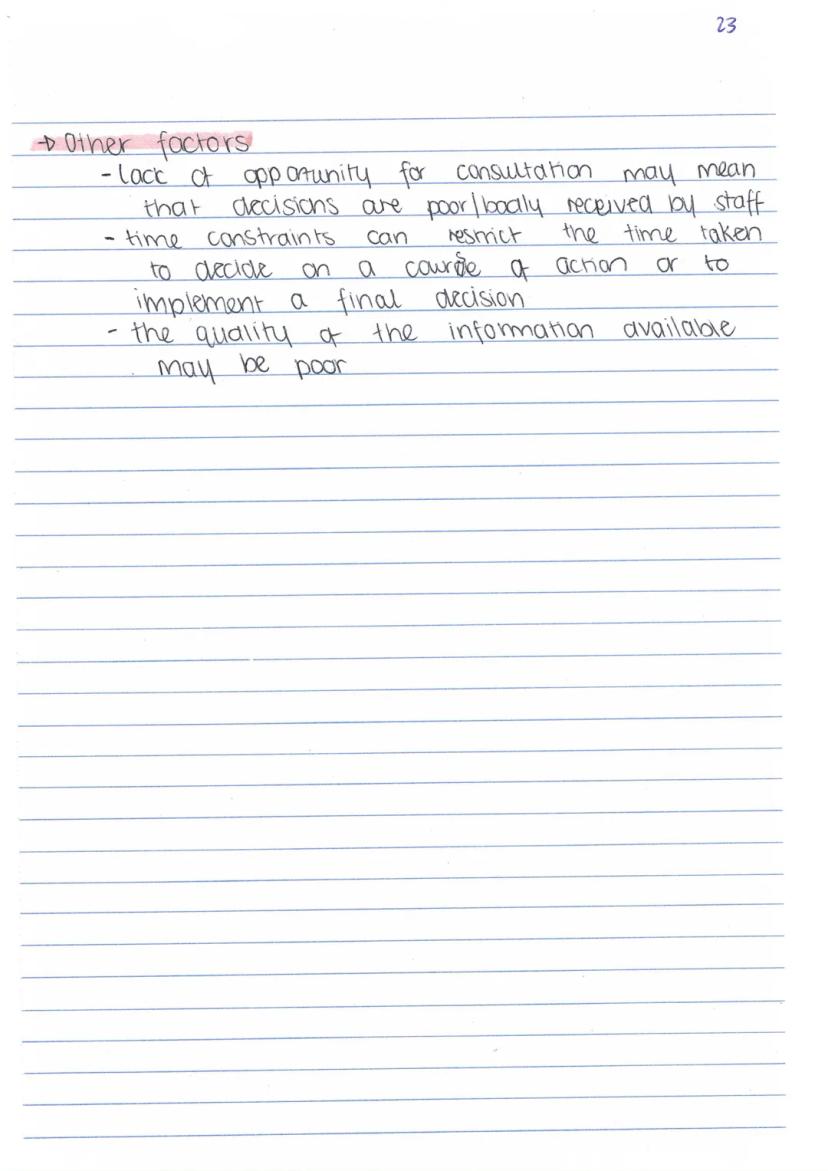 23
→ Other factors
- lack of opportunity for consultation may mean
that decisions are poor/badly received by staff
- time constraints can restrict the time taken
to decide on a course of action or to
implement a final decision
- the quality of the information available
may be poor